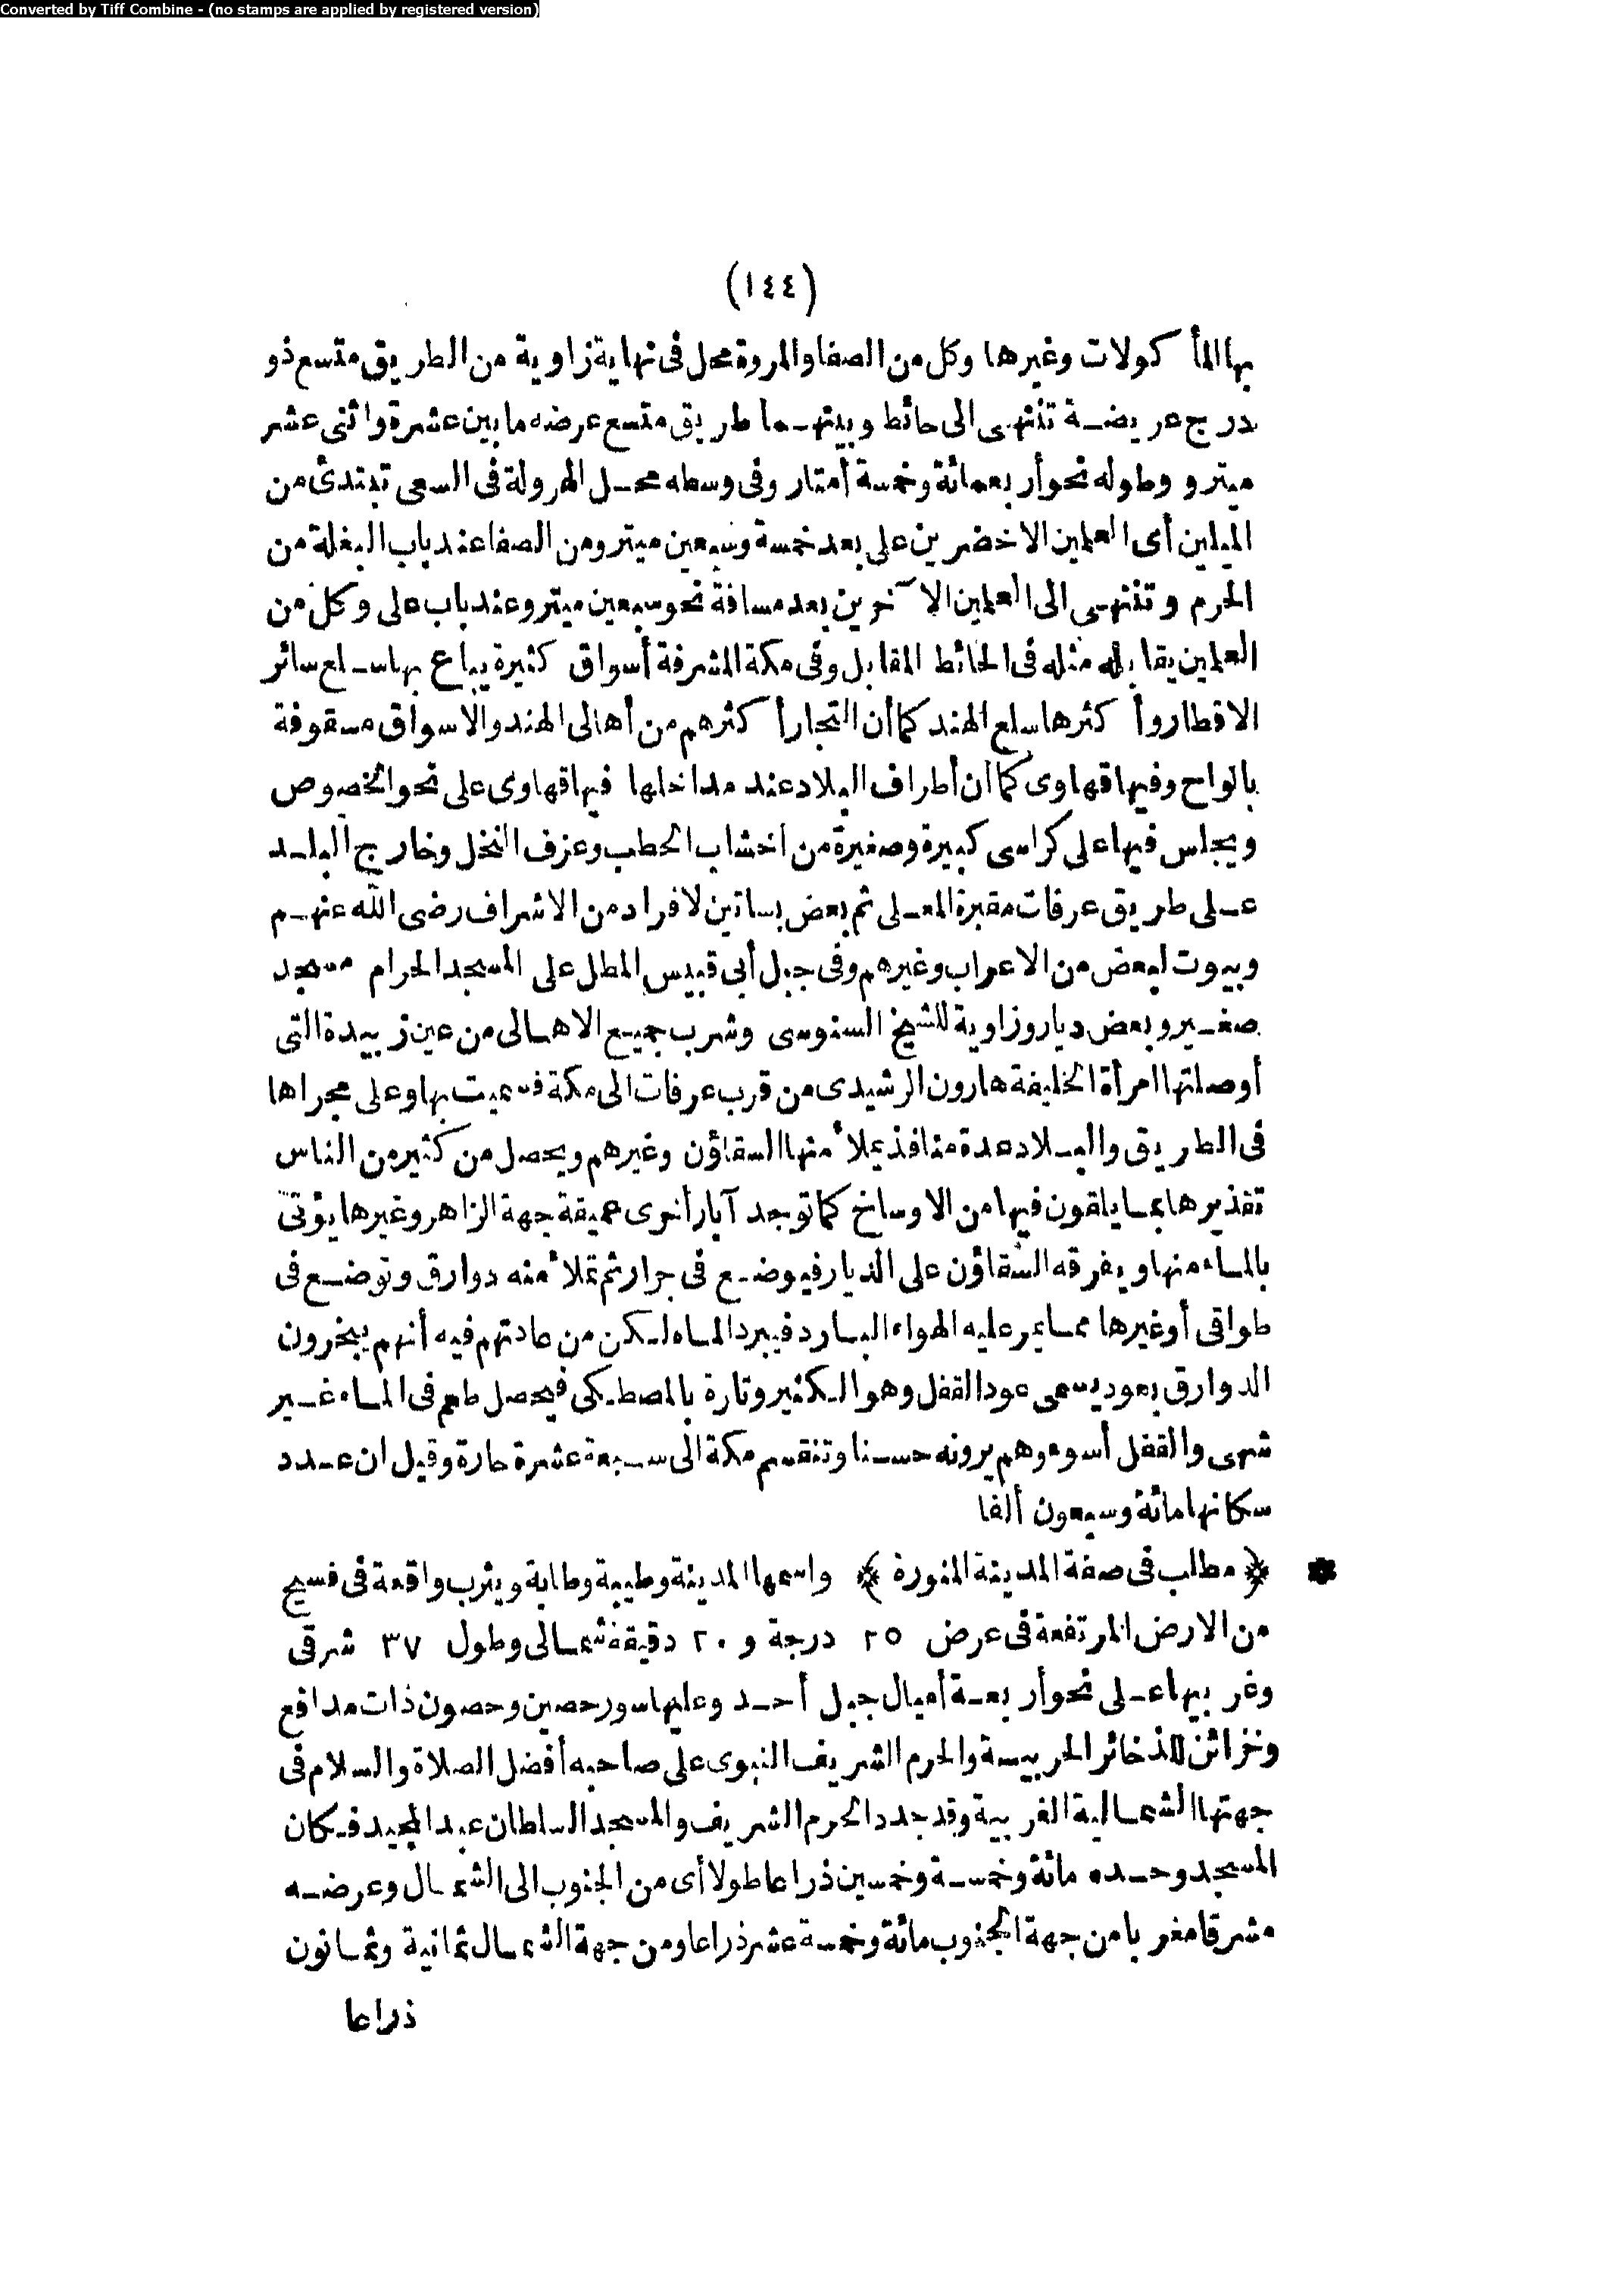 Converted by Tiff Combine - (no stamps are applied by registered version)
(١٤٤)
بها المأكولات وغيرها وكل من الصفا والمروة محل فى نهاية زاوية من الطريق متسع ذو
درج عريضة تنتهى الى حائط وبينهما طريق متسع عرضه ما بين عشرة واثنى عشر
ميترو وطوله نحو أربعمائة وخمسة أمتار وفى وسطه محل الهرولة فى السعى تبتدئ من
الميلين أى العلمين الاخضرين على بعد خمسة وسبعين ميترو من الصفا عند باب البغلة من
الحرم وتنتهى الى العلمين الآخرين بعد مسافة نحو سبعين ميترو عند باب على وكل من
العلمين يقابله مثله فى الحائط المقابل وفى مكة المشرفة أسواق كثيرة يباع بها سلع سائر
الاقطار وأكثرها سلع الهند كما أن التجار أكثرهم من أهالى الهند والاسواق مسقوفة
بالواح وفيها قهاوى كما أن أطراف البلاد عند مداخلها فيها قهاوى على نحو الخصوص
ويجلس فيها على كراسى كبيرة وصغيرة من أخشاب الحطب وعزف النخل وخارج البلد
على طريق عرفات مقبرة المعلى ثم بعض بساتين لافراد من الاشراف رضى الله عنهم
وبيوت لبعض من الاعراب وغيرهم وفى جبل أبى قبيس المطل على المسجد الحرام مسجد
صغير وبعض ديار وزاوية للشيخ السنوسى وشرب جميع الاهالى من عين زبيدة التى
أوصلتها امرأة الخليفة هارون الرشيدى من قرب عرفات الى مكة فسميت بها وعلى مجراها
فى الطريق والبلاد عدة منافذ يملأ منها السقاؤن وغيرهم ويحصل من كثير من الناس
تقذيرها بما يلقون فيها من الاوساخ كما توجد آبار أخرى عميقة جهة الزاهر وغيرها يؤتى
بالماء منها ويفرقه السقاؤن على الديار فيوضع فى جرار ثم تملأ منه دوارق وتوضع فى
طواقى أو غيرها مما يمر عليه الهواء البارد فيبرد الماء لكن من عادتهم فيه أنهم يبخرون
الدوارق بعود يسمى عود القفل وهو الكثير وتارة بالمصطكى فيحصل طعم فى الماء غير
شهى والقفل أسوء وهم يرونه حسنا وتنقسم مكة الى سبعة عشرة حارة وقيل ان عدد
سكانها مائة وسبعون ألفا
* ﴿مطلب فى صفة المدينة المنورة﴾ واسمها المدينة وطيبة وطابة ويثرب واقعة فى فسيح
من الارض المرتفعة فى عرض ٢٥ درجة و ٢٠ دقيقة شمالى وطول ٣٧ شرقى
وغربيها على نحو أربعة أميال جبل أحد وعليها سور حصين وحصون ذات مدافع
وخزائن للذخائر الحربيسة والحرم الشريف النبوى على صاحبه أفضل الصلاة والسلام فى
جهتها الشمالية الغربية وقد جدد الحرم الشريف والمسجد السلطان عبد المجيد فكان
المسجد وحده مائة وخمسة وخمسين ذراعا طولا أى من الجنوب الى الشمال وعرضه
مشرقا مغربا من جهة الجنوب مائة وخمسة عشر ذراعا ومن جهة الشمال ثمانية وثمانون
ذراعا